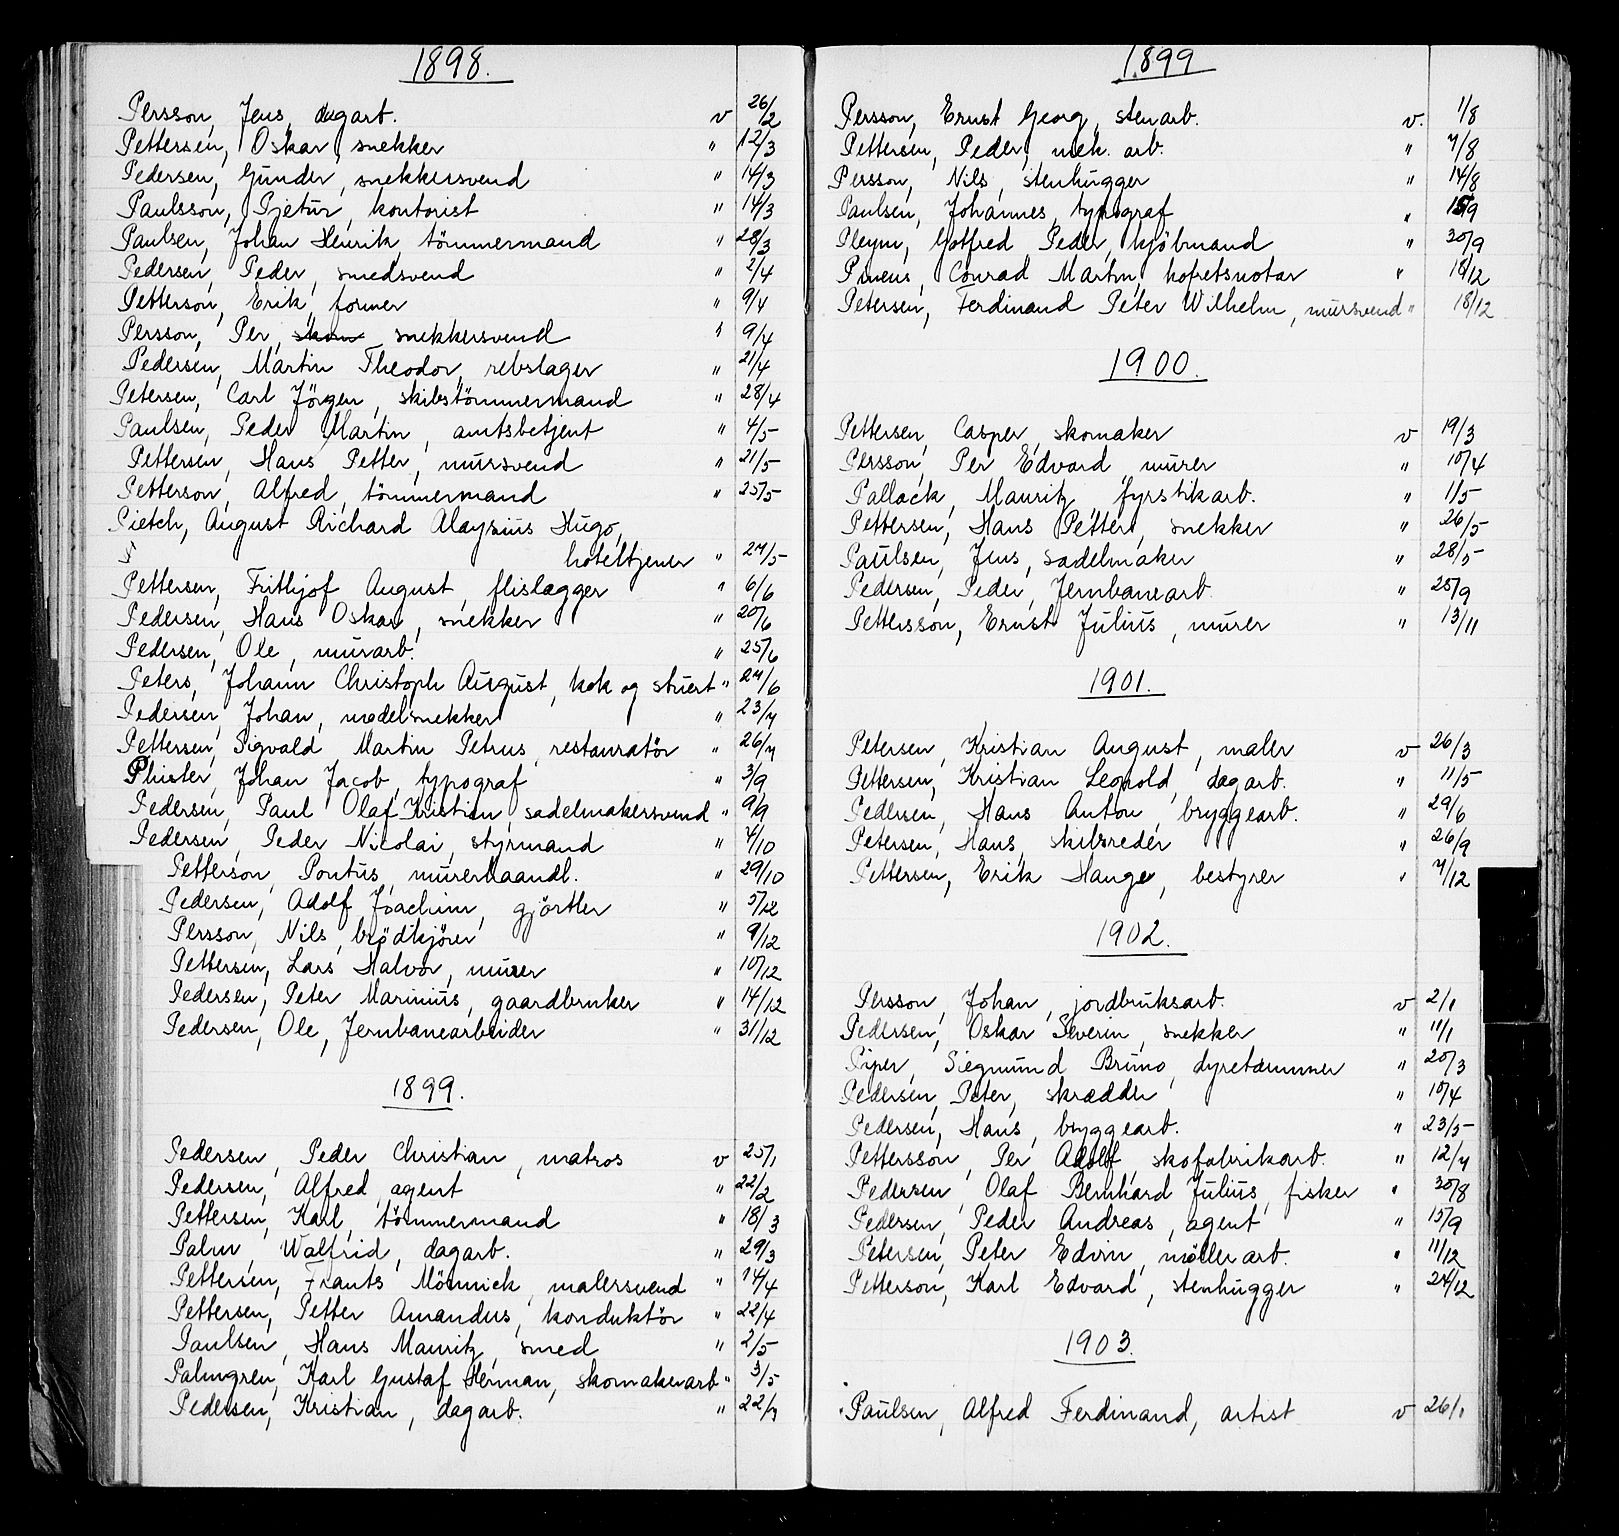 1898.
Persson, Jens, dagart. v 26/2
Pettersen, Oskar, snekker " 12/3
Pedersen, Gunder, snekkersvend " 14/3
Paulsson, Pjetur, kontorist " 14/3
Paulsen, Johan Henrik tömmermand " 28/3
Pedersen, Peder, smedsvend " 2/4
Petterson, Erik, former " 9/4
Persson, Per, skom snekkersvend " 9/4
Pedersen, Martin Theodor, rebslager " 21/4
Petersen, Carl Jörgen, skibstömmermand " 28/4
Paulsen, Peder Martin, amtsbetjent " 4/5
Pettersen, Hans Petter, mursvend " 21/5
Petterson, Alfred, tömmermand " 25/5
Pietch, August Richard Alaysius Hugo,
hoteltjener " 27/5
Pettersen, Frithjof August, flislægger " 6/6
Pedersen, Hans Oskar, snekker " 20/6
Pedersen, Ole, murarb. " 25/6
Peters, Johann Christoph August, kok og stuert " 27/6
Pedersen, Johan, modelsnekker " 23/7
Pettersen, Sigvald Martin Petrus, restauratör " 26/7
Phister, Johan Jacob, typograf " 3/9
Pedersen, Paul Olaf Kristian, sadelmakersvend " 9/9
Pedersen, Peder Nicolai, styrmand " 4/10
Petterson, Pontus, murerhaandl. " 29/10
Pedersen, Adolf Joachim, gjörtler " 5/12
Persson, Nils, brödkjörer " 9/12
Pettersen, Lars Halvor, murer " 10/12
Pedersen, Peter Marinius, gaardbruker " 14/12
Pedersen, Ole, Jernbanearbeider " 31/12
1899.
Pedersen, Peder Christian, matros v 25/1
Pedersen, Alfred, agent " 22/2
Pettersen, Karl, tömmermand " 18/3
Palm, Walfrid, dagarb. " 29/3
Pettersen, Frants Mönnick, malersvend " 14/4
Pettersen, Petter Amandus, konduktör " 22/4
Paulsen, Hans Mauritz, smed " 2/5
Palmgren, Karl Gustaf Herman, skomakerarb " 3/5
Pedersen, Kristian, dagarb. " 22/7
1899
Persson, Ernst Georg, stenarb. v. 1/8
Pettersen, Peder, mek. arb. " 7/8
Persson, Nils, stenhugger " 14/8
Paulsen, Johannes, typograf " 15/9
Pleym, Gotfred Peder, kjöbmand " 30/9
Conrad Martin, hofretsnotar " 18/12
Petersen, Ferdinand Peter Wilhelm, mursvend " 18/12
1900.
Pettersen, Casper, skomaker v 19/3
Persson, Per Edvard, murer " 10/4
Pallack, Mauritz, fyrstikarb. " 1/5
Pettersen, Hans Petter, snekker " 26/5
Paulsen, Jens, sadelmaker " 28/5
Pedersen, Peder, Jernbanearb. " 25/9
Pettersson, Ernst Julius, murer " 13/11
1901.
Petersen, Kristian August, maler v 26/3
Pettersen, Kristian Leopold, dagarb. " 11/5
Pedersen, Hans Anton, bryggearb. " 29/6
Petersen, Hans, skibsreder " 26/9
Pettersen, Erik Hange, bestyrer " 7/12
1902.
Persson, Johan, jordbruksarb. v 2/1
Pedersen, Oskar Severin, snekker " 11/1
Piper, Siegmund Bruno, dyretæmmer " 20/3
Pedersen, Peter, skrædder " 10/4
Pedersen, Hans, bryggearb. " 23/5
Pettersson, Per Adolf, skofabrikarb. " 12/7
Pedersen, Olaf Bernhard Julius, fisker " 30/8
Pedersen, Peder Andreas, agent " 15/9
Petersen, Peter Edvin, möllerarb. " 11/12
Petterson, Karl Edvard, stenhugger " 24/12
1903.
Paulsen, Alfred Ferdinand, artist v 26/1